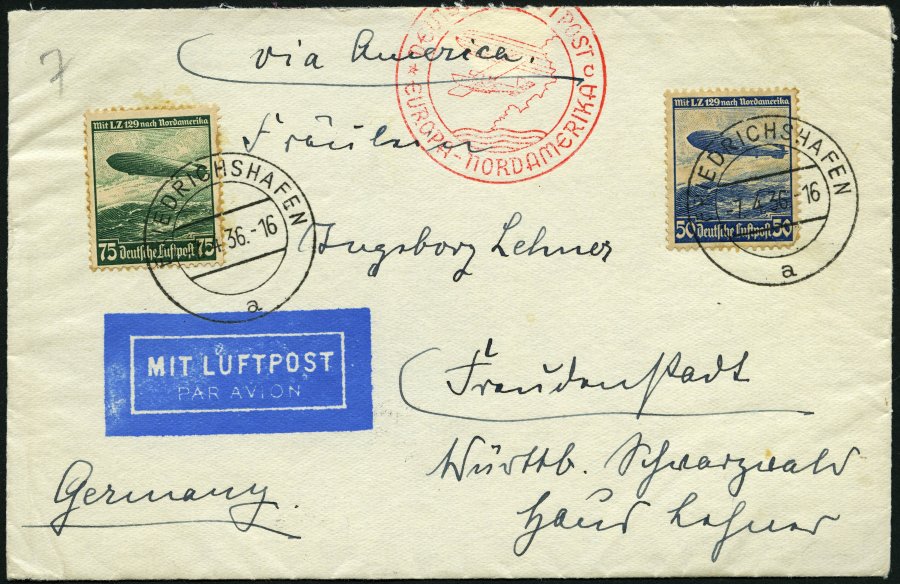 7
via America.
DEUTSCHE LUFTPOST
EUROPA-NORDAMERIKA
Mit LZ 129 nach Nordamerika
75 Deutsche Luftpost 75
FRIEDRICHSHAFEN
4.36.-16
a
Mit LZ 129 nach Nordamerika
50 Deutsche Luftpost 50
FRIEDRICHSHAFEN
4.36.-16
a
Fräulein
Ingeborg Lehner
MIT LUFTPOST
PAR AVION
Freudenstadt
Württb. Schwarzwald
Haus Lehner
Germany